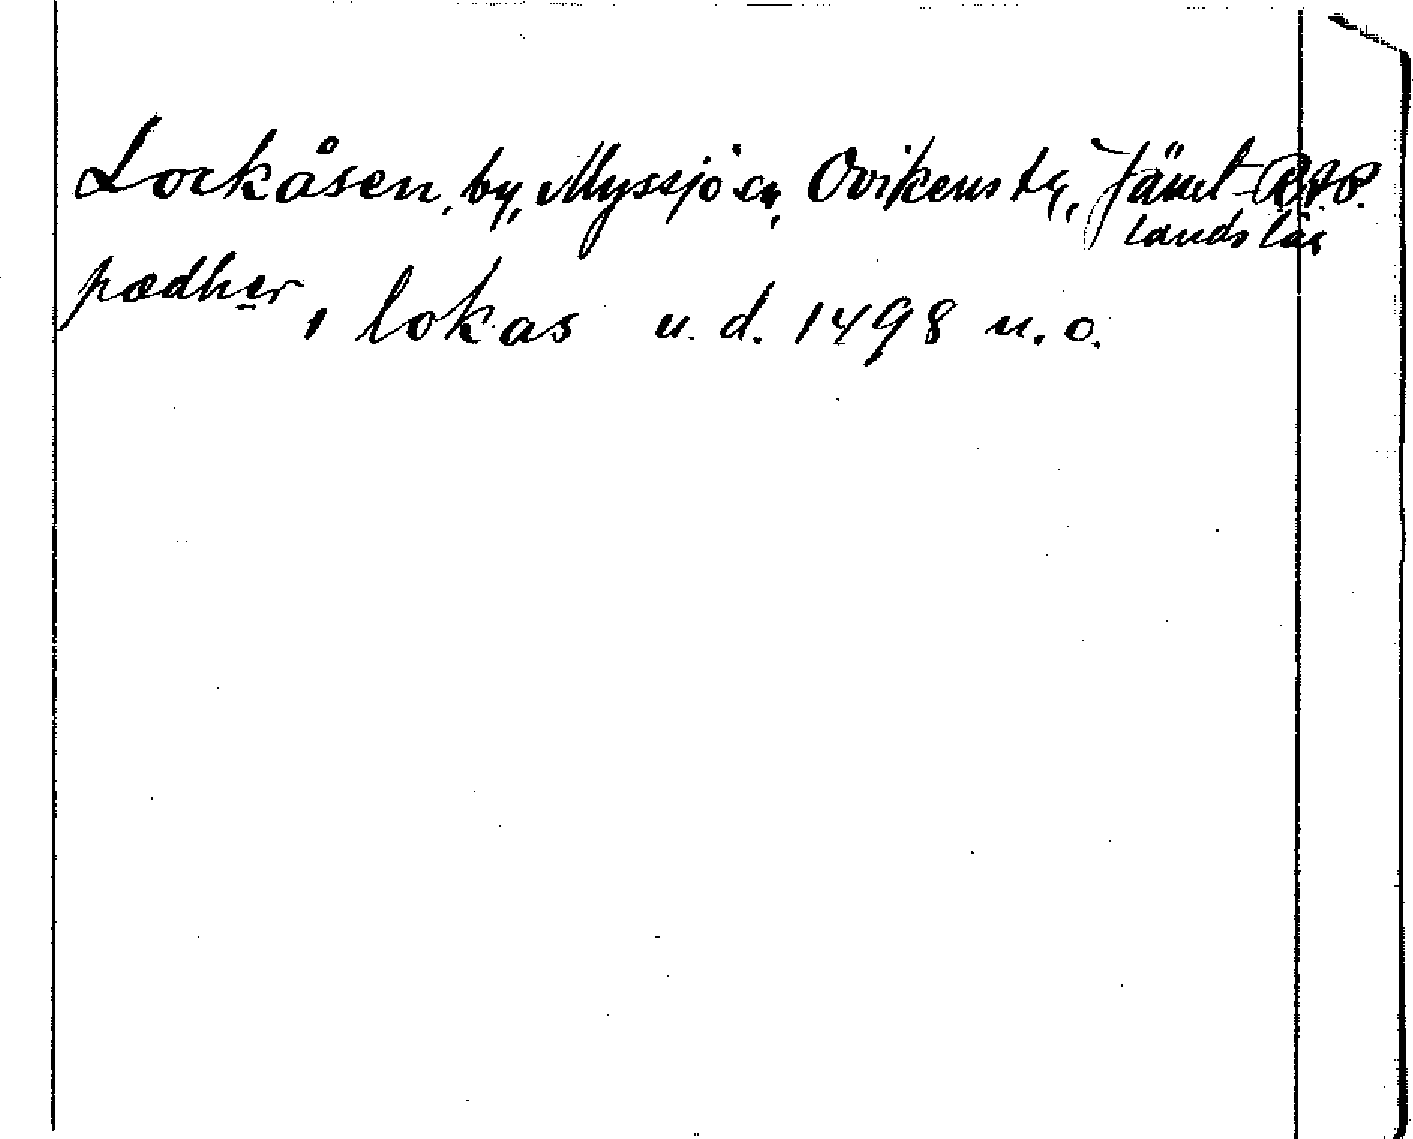 Lockåsen, by, Myssjö sn, Ovikens tg, Jämt-
lands län
pædher i lokas u. d. 1498 n. o.